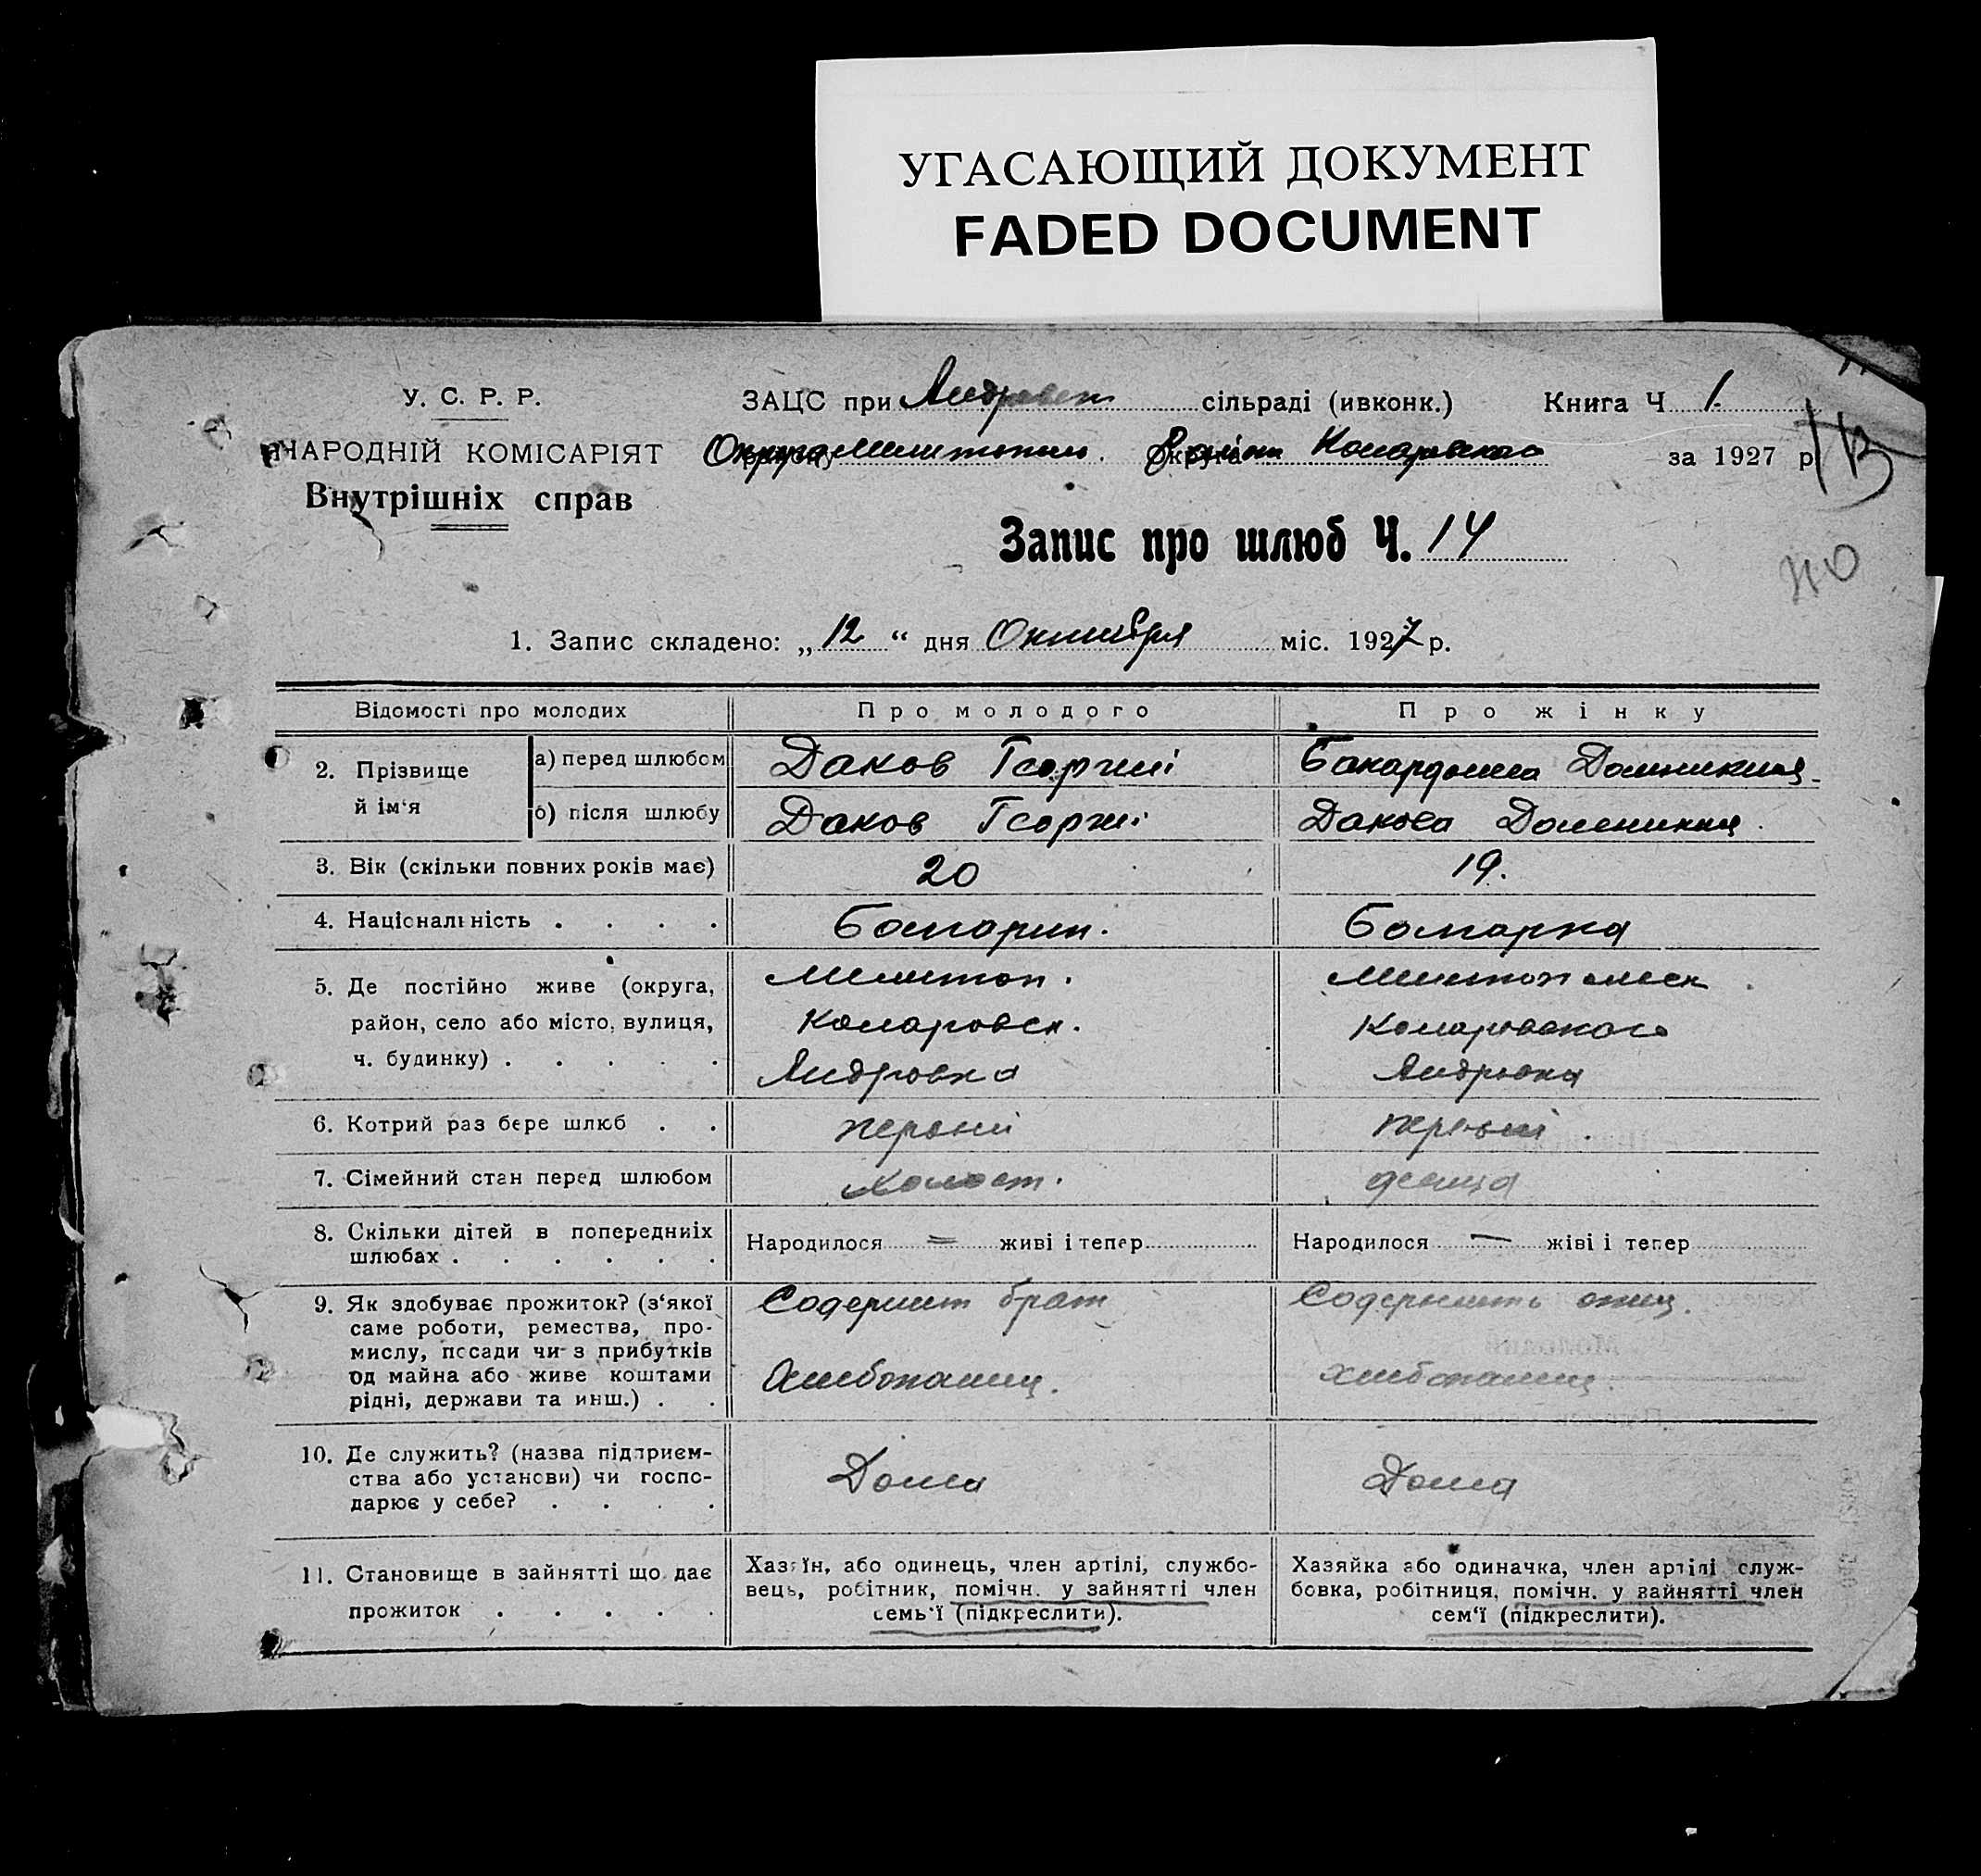 УГАСАЮЩИЙ ДОКУМЕНТ
FADED DOCUMENT
У. С. Р. Р.
НАРОДНІЙ КОМІСАРІЯТ
Внутрішніх справ
ЗАЦС при Андровск сільраді (ивконк.) Книга Ч 1
Округа Мелитополь. Района Комаровского за 1927 р.
Запис про шлюб Ч. 14
1. Запис складено: „12“ дня Октября міс. 1927 р.
Відомості про молодих Про молодого Про жінку
2. Прізвище й ім‘я
а) перед шлюбом Даков Георгий Домникия
б) після шлюбу Даков Георгий Дакова Доменикия
3. Вік (скільки повних років має) 20 19.
4. Національність . . . . Болгарин. Болгарка
5. Де постійно живе (округа, Мелитоп. Мелитопольск
район, село або місто, вулиця, Комаровск. Комаровского
ч. будинку) . . . . . Андровка Андровка
6. Котрий раз бере шлюб . . первий первый
7. Сімейний стан перед шлюбом холост. девица
8. Скільки дітей в попередниіх
шлюбах . . . . . . Народилося = живі і тепер Народилося — жіві і тепер
9. Як здобуває прожиток? (з‘якої Содержит брат Содержить отец.
саме роботи, ремества, про-
мислу, посади чи з прибутків
од майна або живе коштами Хлебопашец. хлебопашец.
рідні, держави та инш.) . .
10. Де служить? (назва підприєм-
ства або установи) чи госпо- Дома Дома
дарює у себе? . . . .
11. Становище в зайнятті що дає
прожиток . . . . .
Хазяїн, або одинець, член артілі, службо-
вець, робітник, помічн. у зайнятті член
семь‘ї (підкреслити).
Хазяйка або одиначка, член артілі служ-
бовка, робітниця, помічн. у зайнятті член
сем‘ї (підкреслити).